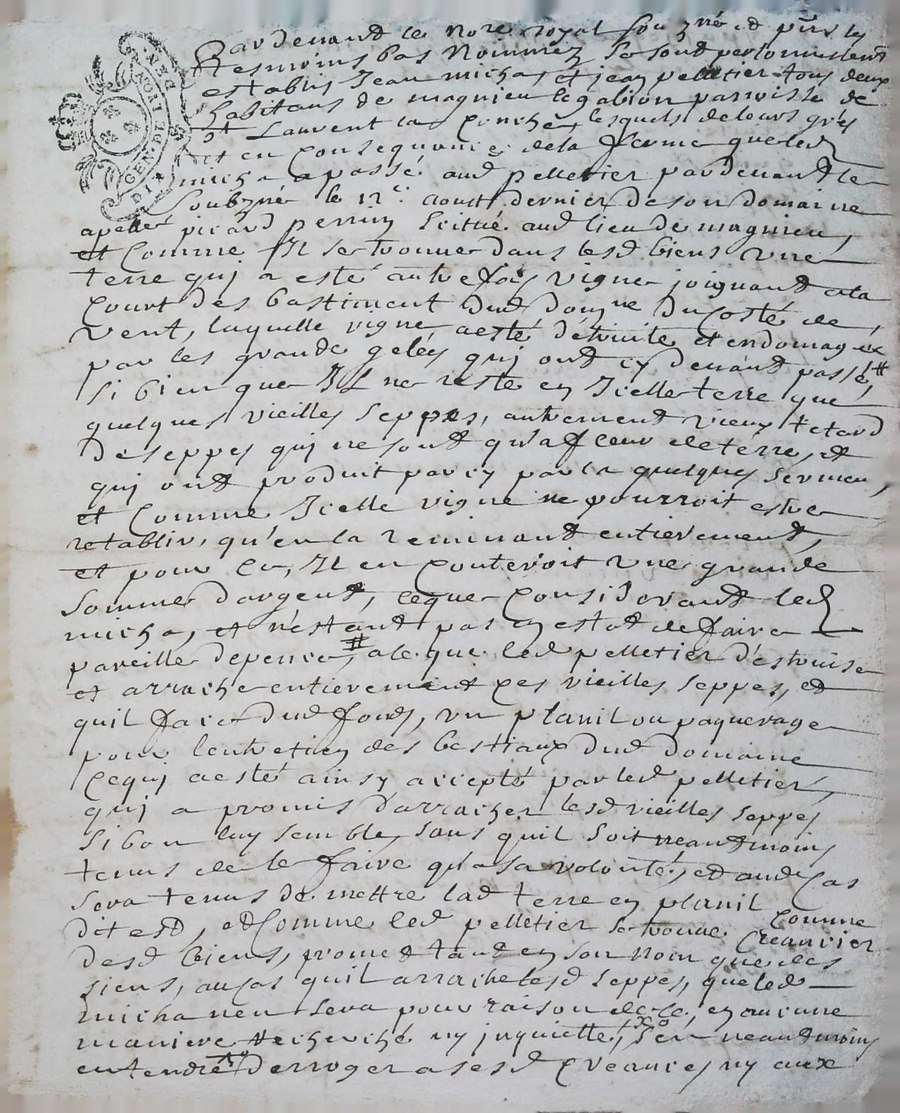 GEN. DE MOULIN
Pardevant le nore royal soubzné et pnts les
tesmoins bas nommez se sont personnellemt
establis Jean micha et jean pelletier tous deux
habitans de magnieu le gabion parroisse de
st Laurent la Conche lesquels de leurs grés
et en consequance de la ferme que led
micha a passé aud pelletier pardevant le
soubzné le 12e aoust dernier de son domaine
apellé picard perrin scittué aud lieu de magnieu,
et comme Il se trouve dans lesd biens une
terre qui a esté autrefois vigne joignant a la
Court des bastiment dud domne du costé de
vent, laquelle vigne a esté detruite et endomagée
par les grande gelées qui ont cy devant passé,
si bien que Il ne reste en Icelle terre que
quelques vieilles seppes, autrement vieux tetard
de seppes qui ne sont qu'a fleur de terre, et
qui ont produit par cy par la quelques sermen,
et comme Icelle vigne ne pourroit estre
retablir, qu'en la reminant entierement,
et pour ce, Il en couteroit une grande
somme d'argent, ce que considerant led
micha, et n'estant pas en estat de faire
pareille depence, a le que led pelletier d'estruise
et arrache entierement ces vieilles seppes, et
quil face dud fonds, un planil ou paquerage
pour lentretien des bestiaux dud domaine
ce qui a esté ainsy accepté par led pelletier,
qui a promis d'arracher lesd vieilles seppes
si bon luy semble sans quil soit neantmoins
tenus de le faire qu'a sa volonté, et aud cas
sera tenus de mettre lad terre en planil Comme
dit est, et comme led pelletier se trouve Creancier
desd biens, promet tant en son nom que des
siens, au cas quil arrache lesd seppes, que led
micha n'en sera pour raison de ce, en aucune
maniere recherché ny inquietté, s'en neantmoins
entendre derroger a sesd creances ny aux